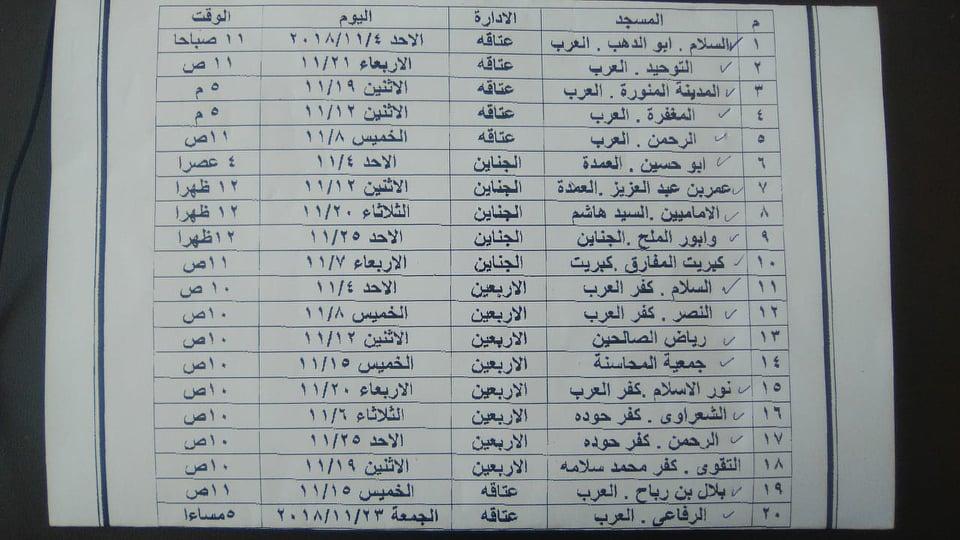 م المسجد الادارة اليوم الوقت
١ السلام . ابو الدهب . العرب عتاقه الاحد ٢٠١٨/١١/٤ ١١ صباحا
٢ التوحيد . العرب عتاقه الاربعاء ١١/٢١ ١١ ص
٣ المدينة المنورة . العرب عتاقه الاثنين ١١/١٩ ٥ م
٤ المغفرة . العرب عتاقه الاثنين ١١/١٢ ٥ م
٥ الرحمن . العرب عتاقه الخميس ١١/٨ ١١ص
٦ ابو حسين . العمدة الجناين الاحد ١١/٤ ٤ عصرا
٧ عمربن عبد العزيز .العمدة الجناين الاثنين ١١/١٢ ١٢ ظهرا
٨ الاماميين .السيد هاشم الجناين الثلاثاء ١١/٢٠ ١٢ ظهرا
٩ وابور الملح .الجناين الجناين الاحد ١١/٢٥ ١٢ظهرا
١٠ كبريت المفارق .كبريت الجناين الاربعاء ١١/٧ ١١ص
١١ السلام . كفر العرب الاربعين الاحد ١١/٤ ١٠ ص
١٢ النصر . كفر العرب الاربعين الخميس ١١/٨ ١٠ص
١٣ رياض الصالحين الاربعين الاثنين ١١/١٢ ١٠ص
١٤ جمعية المحاسنة الاربعين الخميس ١١/١٥ ١٠ص
١٥ نور الاسلام .كفر العرب الاربعين الاربعاء ١١/٢٠ ١٠ص
١٦ الشعراوى . كفر حوده الاربعين الثلاثاء ١١/٦ ١٠ص
١٧ الرحمن . كفر حوده الاربعين الاحد ١١/٢٥ ١٠ص
١٨ التقوى . كفر محمد سلامه الاربعين الاثنين ١١/١٩ ١٠ص
١٩ بلال بن رباح . العرب عتاقه الخميس ١١/١٥ ١١ص
٢٠ الرفاعى . العرب عتاقه الجمعة ٢٠١٨/١١/٢٣ ٥مساءا